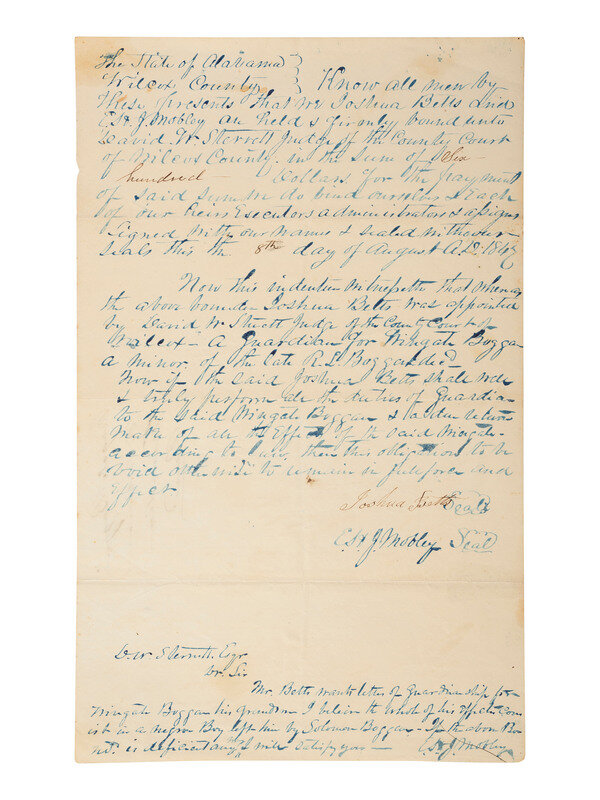 The State of Alabama
Wilcox County Know all men by
these presents that we Joshua Betts and
J Mobley are held & firmly bound unto
David W Sterrett Judge of the County Court
of Wilcox County in the sum of Six
hundred Dollars for the payment
of said sum we do bind ourselves & Each
of our heirs Executors administrators & assigns
Signed with our names & sealed with our
seals this the 8th day of August A.D. 184
Now this indenture witnesseth that whereas
the above bounden Joshua Betts was appointed
by David W Sterrett Judge of the County Court of
Wilcox - a Guardian for Wingate Boggan
a minor of the late R. L. Boggan decd
Now if the said Joshua Betts shall well
& truly perform all the duties of Guardian
to the said Wingate Boggan & a return
make of all the Effects of the said Wingate
according to law, then this obligation to be
void otherwise to remain in full force and
Effect
Joshua Betts Seal
J. Mobley Seal
D. W. Sterrett. Esqr
Dr Sir
Mr. Betts wants letters of Guardianship for
Wingate Boggan his grandson I believe the whole of his Effects cons
ist in a negro Boy left him by Solomon Boggan - If the above Bo
nd. is deficient any I will satisfy you -
J. Mobley